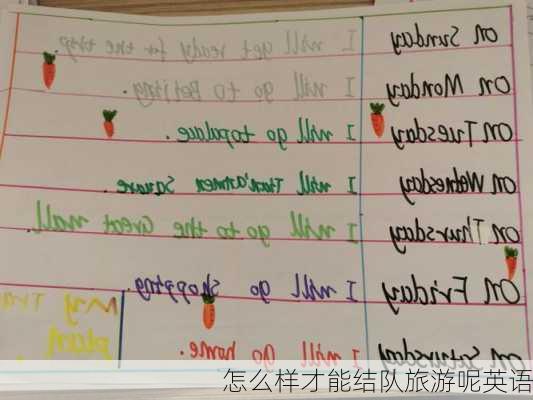 on Sunday I will get ready for the trip.
on Monday I will go to Beijing.
on Tuesday I will go topalace.
on Wednesday I will Tian'anmen Sauare.
on Thursday I will go to the Great mall.
on Friday I will go shopping.
on Satursday I will go home.
My Tra
plan
怎么样才能结队旅游呢英语